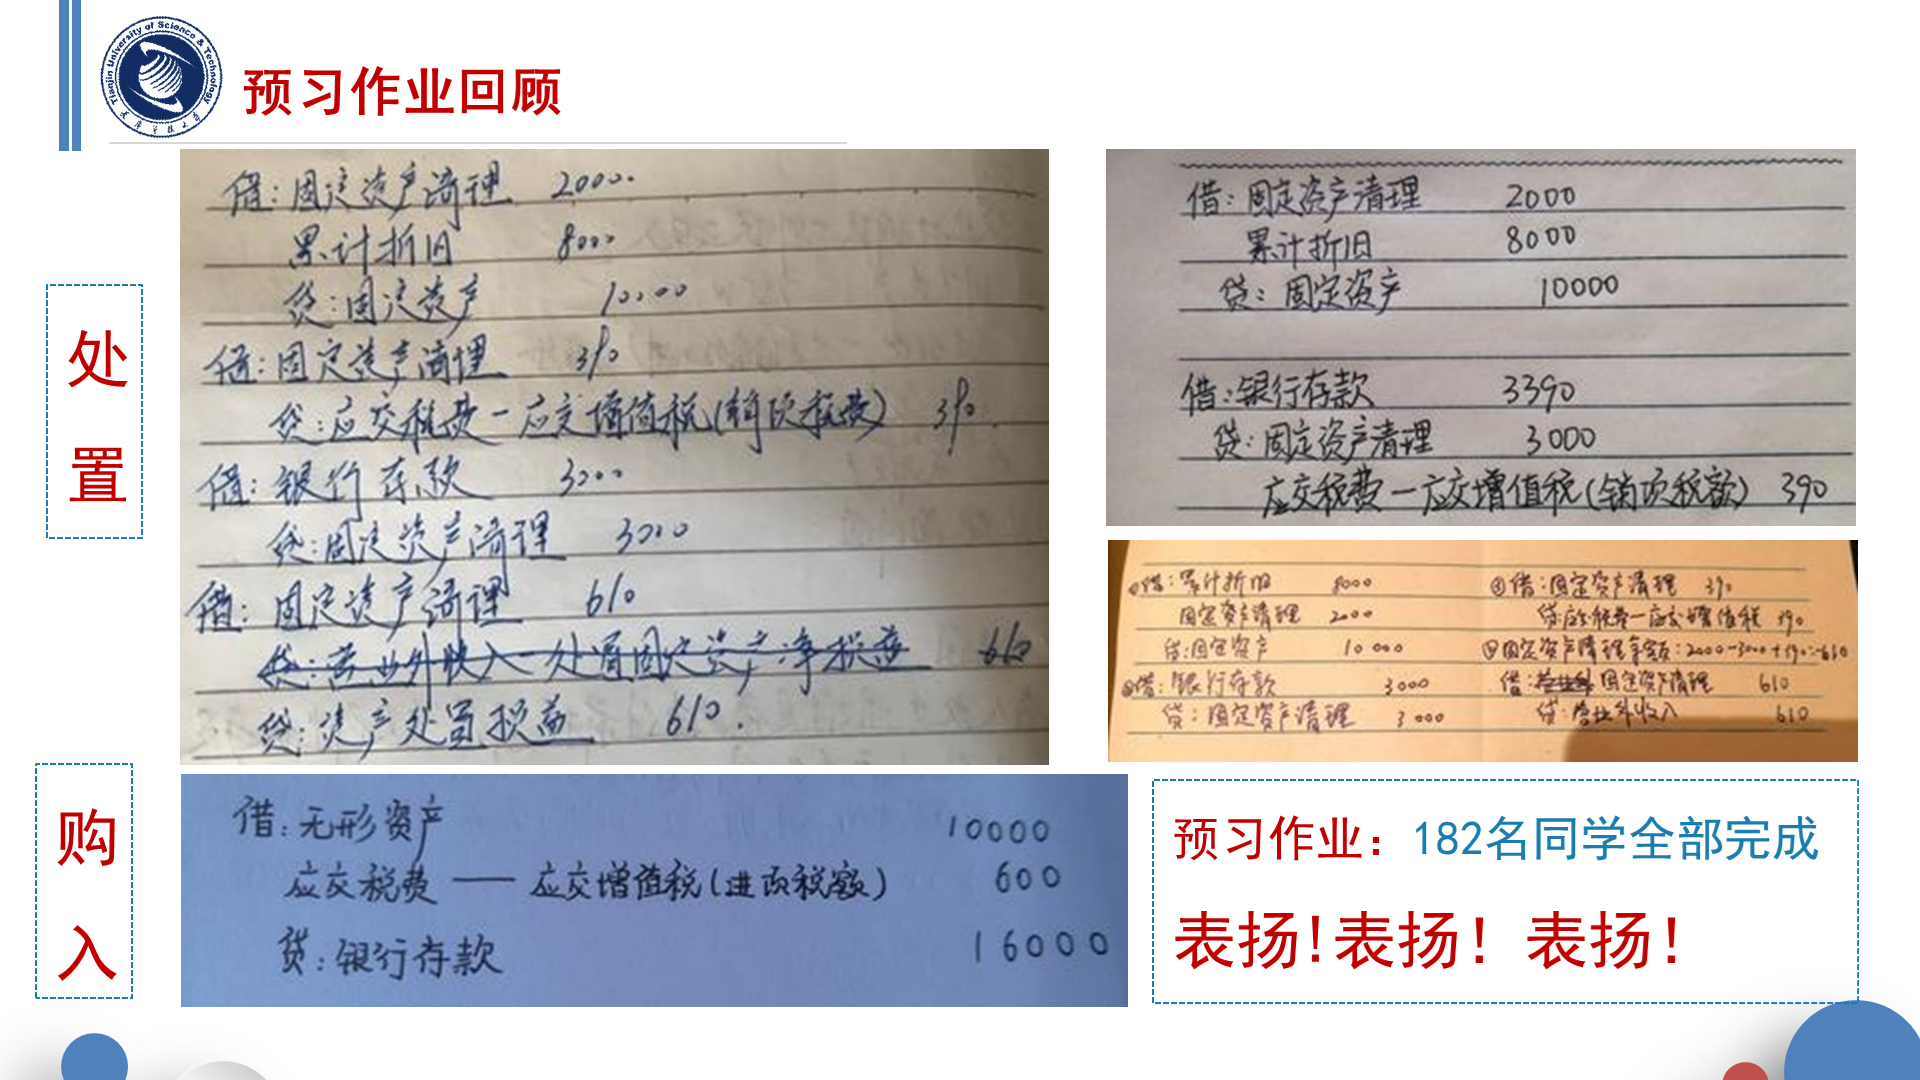 Tianjin University of Science & Technology
预习作业回顾
处
置
借:固定资产清理 2000
累计折旧 8000
贷:固定资产 10000
借:固定资产清理 390
贷:应交税费-应交增值税(销项税费) 390
借:银行存款 3000
贷:固定资产清理 3000
借:固定资产清理 610
贷:营业外收入-处置固定资产净损益 610
贷:资产处置损益 610.
借:固定资产清理 2000
累计折旧 8000
贷:固定资产 10000
借:银行存款 3390
贷:固定资产清理 3000
应交税费-应交增值税(销项税额) 390
①借:累计折旧 8000
固定资产清理 2000
贷:固定资产 10000
②借:银行存款 3000
贷:固定资产清理 3000
③借:固定资产清理 390
贷:应交税费-应交增值税 390
④固定资产清理余额:2000-3000+390=-610
借:固定资产清理 610
贷:营业外收入 610
购
入
借:无形资产 10000
应交税费——应交增值税(进项税额) 600
贷:银行存款 16000
预习作业:182名同学全部完成
表扬!表扬!表扬!